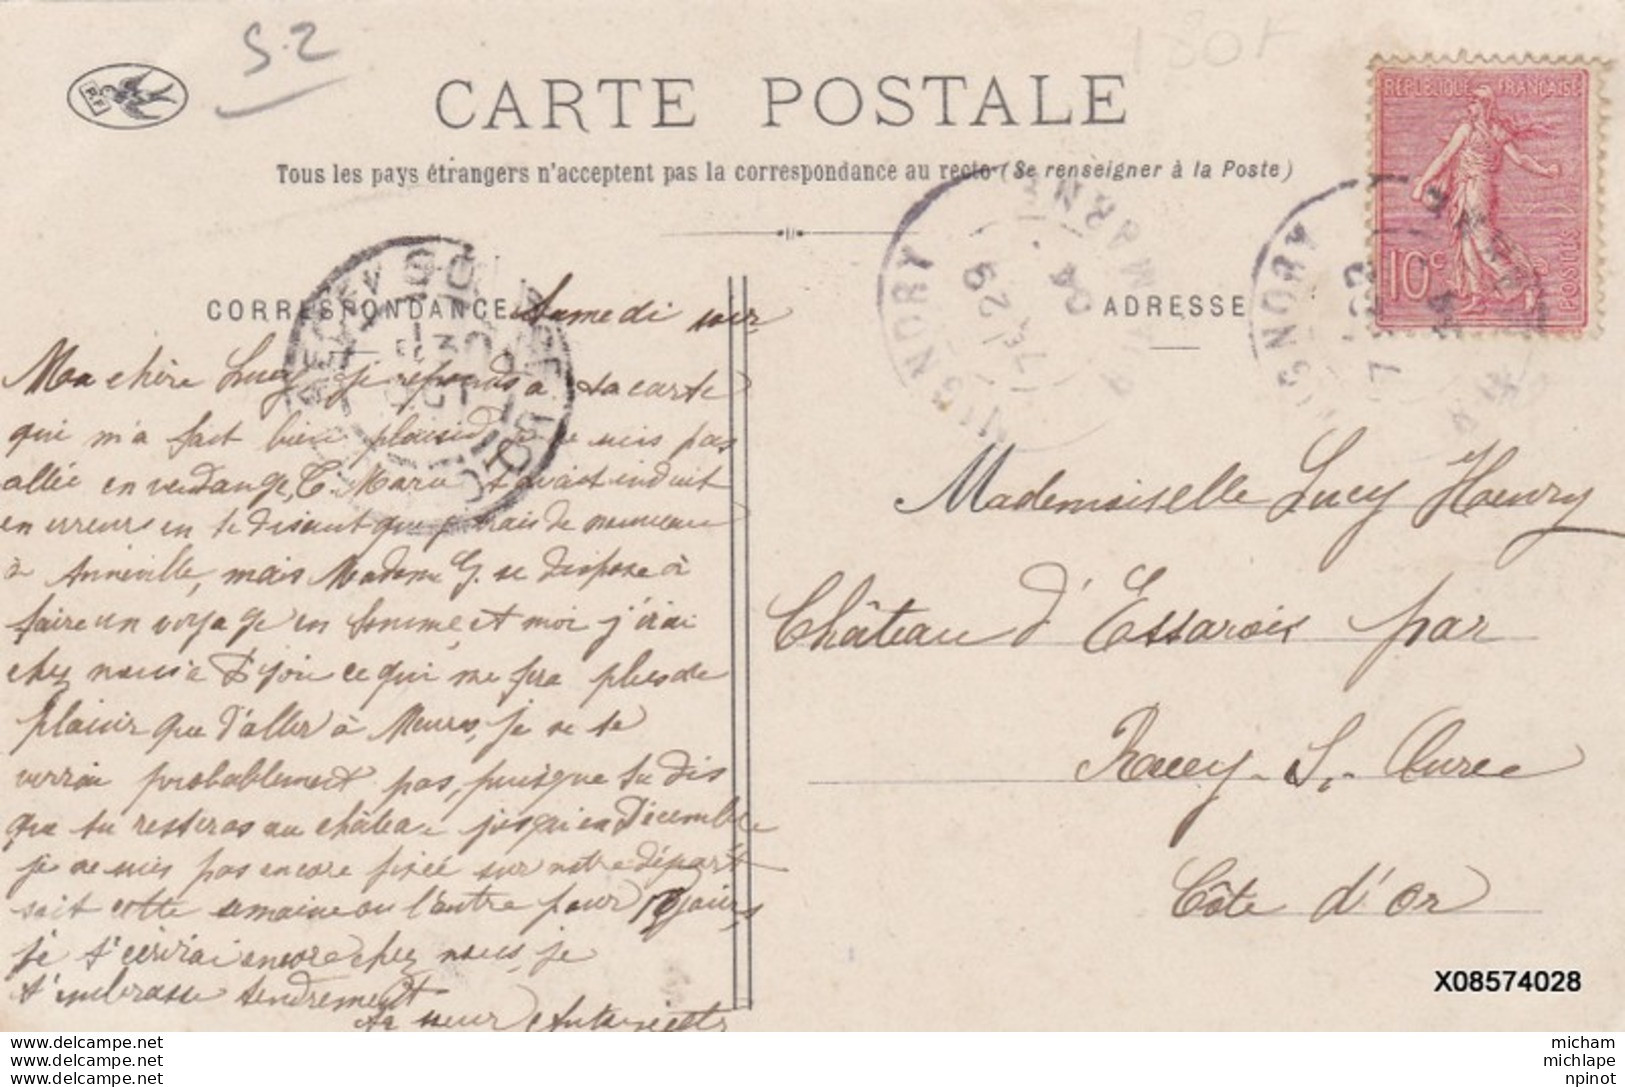 52
180F
P.F
CARTE POSTALE
Tous les pays étrangers n'acceptent pas la correspondance au recto (Se renseigner à la Poste)
REPUBLIQUE FRANÇAISE
10c
POSTES
VIGNORY
Hte MARNE
29
04
RECEY-SUR-OURCE
30
OCT
CORRESPONDANCE
ADRESSE
Samedi soir
Ma chère Lucy, je réponds à ta carte
qui m'a fait bien plaisir je ne suis pas
allée en vendange, C. Marie t'avait induit
en erreur en te disant que j'irais de nouveau
à Anneville, mais Madame G. se dispose à
faire un voyage en Somme, et moi j'irai
chez nous à Dijon ce qui me fera plus de
plaisir que d'aller à Meures, je ne te
verrai probablement pas, puisque tu dis
que tu resteras au château jusqu'en Décembre
je ne suis pas encore fixée sur notre départ
soit cette semaine ou l'autre pour jours,
je t'écrirai encore chez nous, je
t'embrasse tendrement
Ta sœur Antoinette
Mademoiselle Lucy Henry
Château d'Essarois par
Recey-S.-Ource
Côte d'Or
X08574028
micham
michlape
npinot
www.delcampe.net
www.delcampe.net
www.delcampe.net